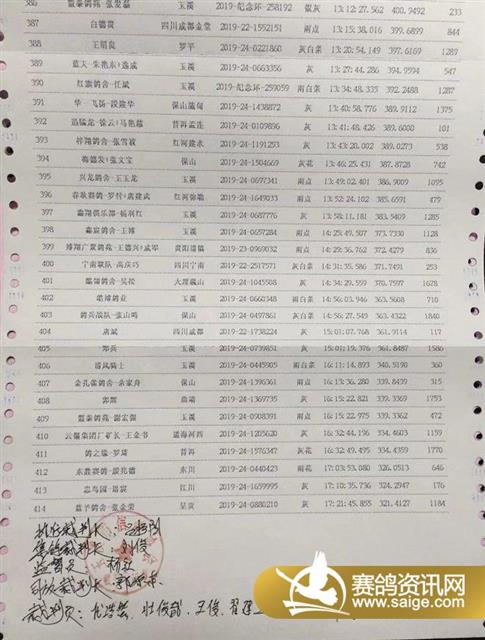 玉溪 2019-纪念环-258192 13:12:27.562 400.9492 233
387 白德贵 四川成都金堂 2019-22-1552151 雨点 13:15:38.016 399.6899 844
388 罗平 2019-24-0221860 灰白条 13:20:54.149 397.6169 1289
389 蓝天-朱艳东+逸成 玉溪 2019-24-0663356 灰 13:27:44.286 394.9594 547
390 红旗鸽舍-任斌 玉溪 2019-纪念环-259059 雨白条 13:34:48.335 392.2488 1287
391 华一飞扬-段建华 保山施甸 2019-24-1438872 灰 13:40:58.776 389.9112 1375
392 迅猛龙-徐云+马艳超 普洱孟连 2019-24-0109896 灰 13:41:48.426 389.6000 101
393 祥翔鸽舍-张雪波 红河建水 2019-24-1191253 灰 13:43:20.002 389.0273 538
394 梅德发+张文宝 保山 2019-24-1504669 灰花 13:46:25.431 387.8728 742
395 兴龙鸽舍-王玉龙 玉溪 2019-24-0697341 雨点 13:49:02.401 386.9009 1095
396 红河弥勒 2019-24-1649033 雨白条 13:52:24.102 385.6591 479
397 玉溪 2019-24-0687776 灰 13:58:11.181 383.5409 1285
398 玉溪 2019-24-0657284 雨点 14:25:49.507 373.7330 1128
399 贵阳清镇 2019-23-0969032 雨点 14:29:36.762 372.4279 836
400 宁南联队-高庆巧 四川宁南 2019-22-2517571 灰白条 14:31:35.586 371.7491 253
401 大理巍山 2019-24-1045508 灰 14:34:29.559 370.7597 1678
402 皓博鸽业 玉溪 2019-24-0660348 雨白条 14:56:03.946 363.5608 710
403 鸽兵战队-张山鸣 保山 2019-24-0497861 灰白条 14:56:27.549 363.4322 1840
404 唐斌 四川成都 2019-22-1738224 灰 15:01:07.768 361.9114 117
405 郑兵 玉溪 2019-24-0739851 灰 15:01:19.376 361.8487 1586
406 清风骑士 玉溪 2019-24-0445905 雨白条 16:11:14.893 340.5190 360
407 金孔雀鸽舍-余家舟 保山 2019-24-1396361 雨点 16:13:36.280 339.8439 315
408 郭辉 曲靖 2019-24-1369735 灰 16:15:22.821 339.3369 1753
409 盟泰鸽苑-谢宏强 玉溪 2019-24-0908391 雨点 16:15:22.975 339.3362 472
410 云锡集团厂矿长-王金书 通海河西 2019-24-1205620 灰 16:32:44.196 334.4603 1159
411 鸽之缘-罗靖 普洱 2019-24-1576347 灰白条 16:32:49.495 334.4359 1770
412 东胜赛鸽-殷兆德 东川 2019-24-0440423 雨花 17:03:53.080 326.0513 646
413 忠鸟园-陪宸 江川 2019-24-1659995 灰 17:10:35.736 324.2947 276
414 蓝予鸽舍-张金荣 呈贡 2019-24-0880210 灰 17:21:45.855 321.4127 1184
执行裁判长：
集鸽裁判长 刘俊
监督 杨立
司放裁判长
裁判员：杜俊 王俊
赛鸽资讯网
www.saige.com